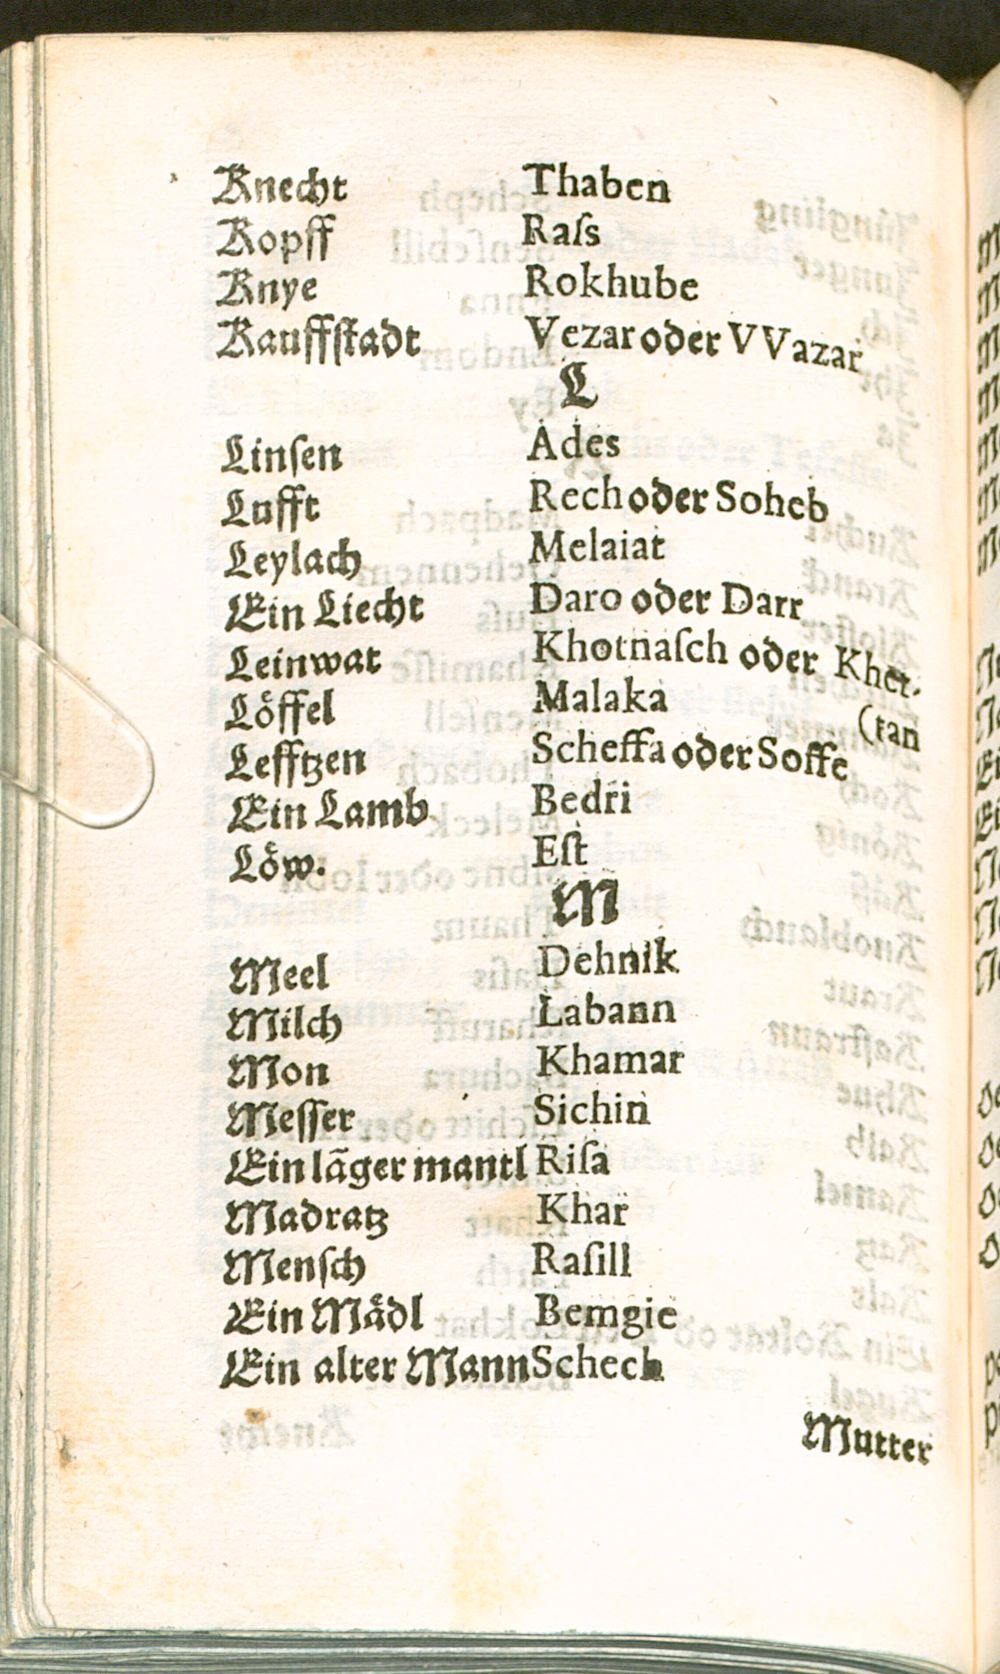 Knecht Thaben
Kopff Raſs
Knye Rokhube
Kauffſtadt Vezar oder VVazar
L
Linſen Ades
Lufft Rech oder Soheb
Leylach Melaiat
Ein Liecht Daro oder Darr
Leinwat Khotnaſch oder Khet-
(tan
Löffel Malaka
Lefftzen Scheffa oder Soffe
Ein Lamb Bedri
Löw. Eſt
M
Meel Dehnik
Milch Labann
Mon Khamar
Meſſer Sichin
Ein lãger mantl Riſa
Madratz Khar
Menſch Raſill
Ein Mådl Bemgie
Ein alter Mann Schech
Mutter